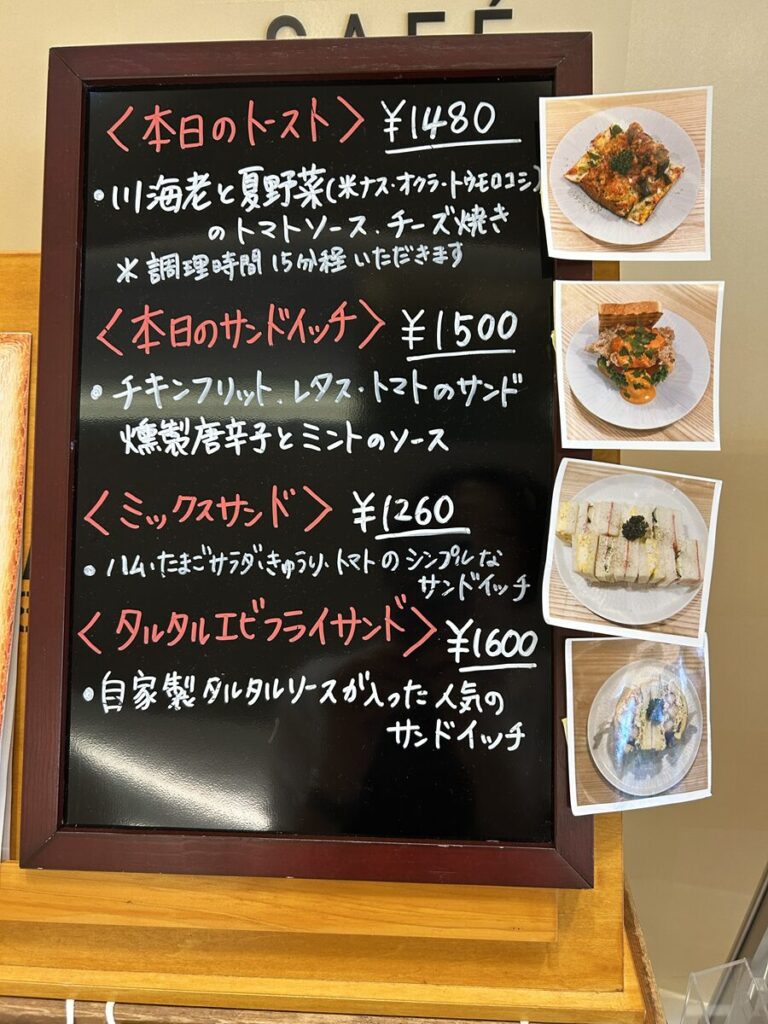 CAFÉ
〈本日のトースト〉 ¥1480
・川海老と夏野菜(米ナス・オクラ・トウモロコシ)
のトマトソース・チーズ焼き
＊調理時間15分程いただきます
〈本日のサンドイッチ〉 ¥1500
・チキンフリット、レタス・トマトのサンド
燻製唐辛子とミントのソース
〈ミックスサンド〉 ¥1260
・ハム・たまごサラダ・きゅうり・トマトのシンプルな
サンドイッチ
〈タルタルエビフライサンド〉 ¥1600
・自家製タルタルソースが入った人気の
サンドイッチ